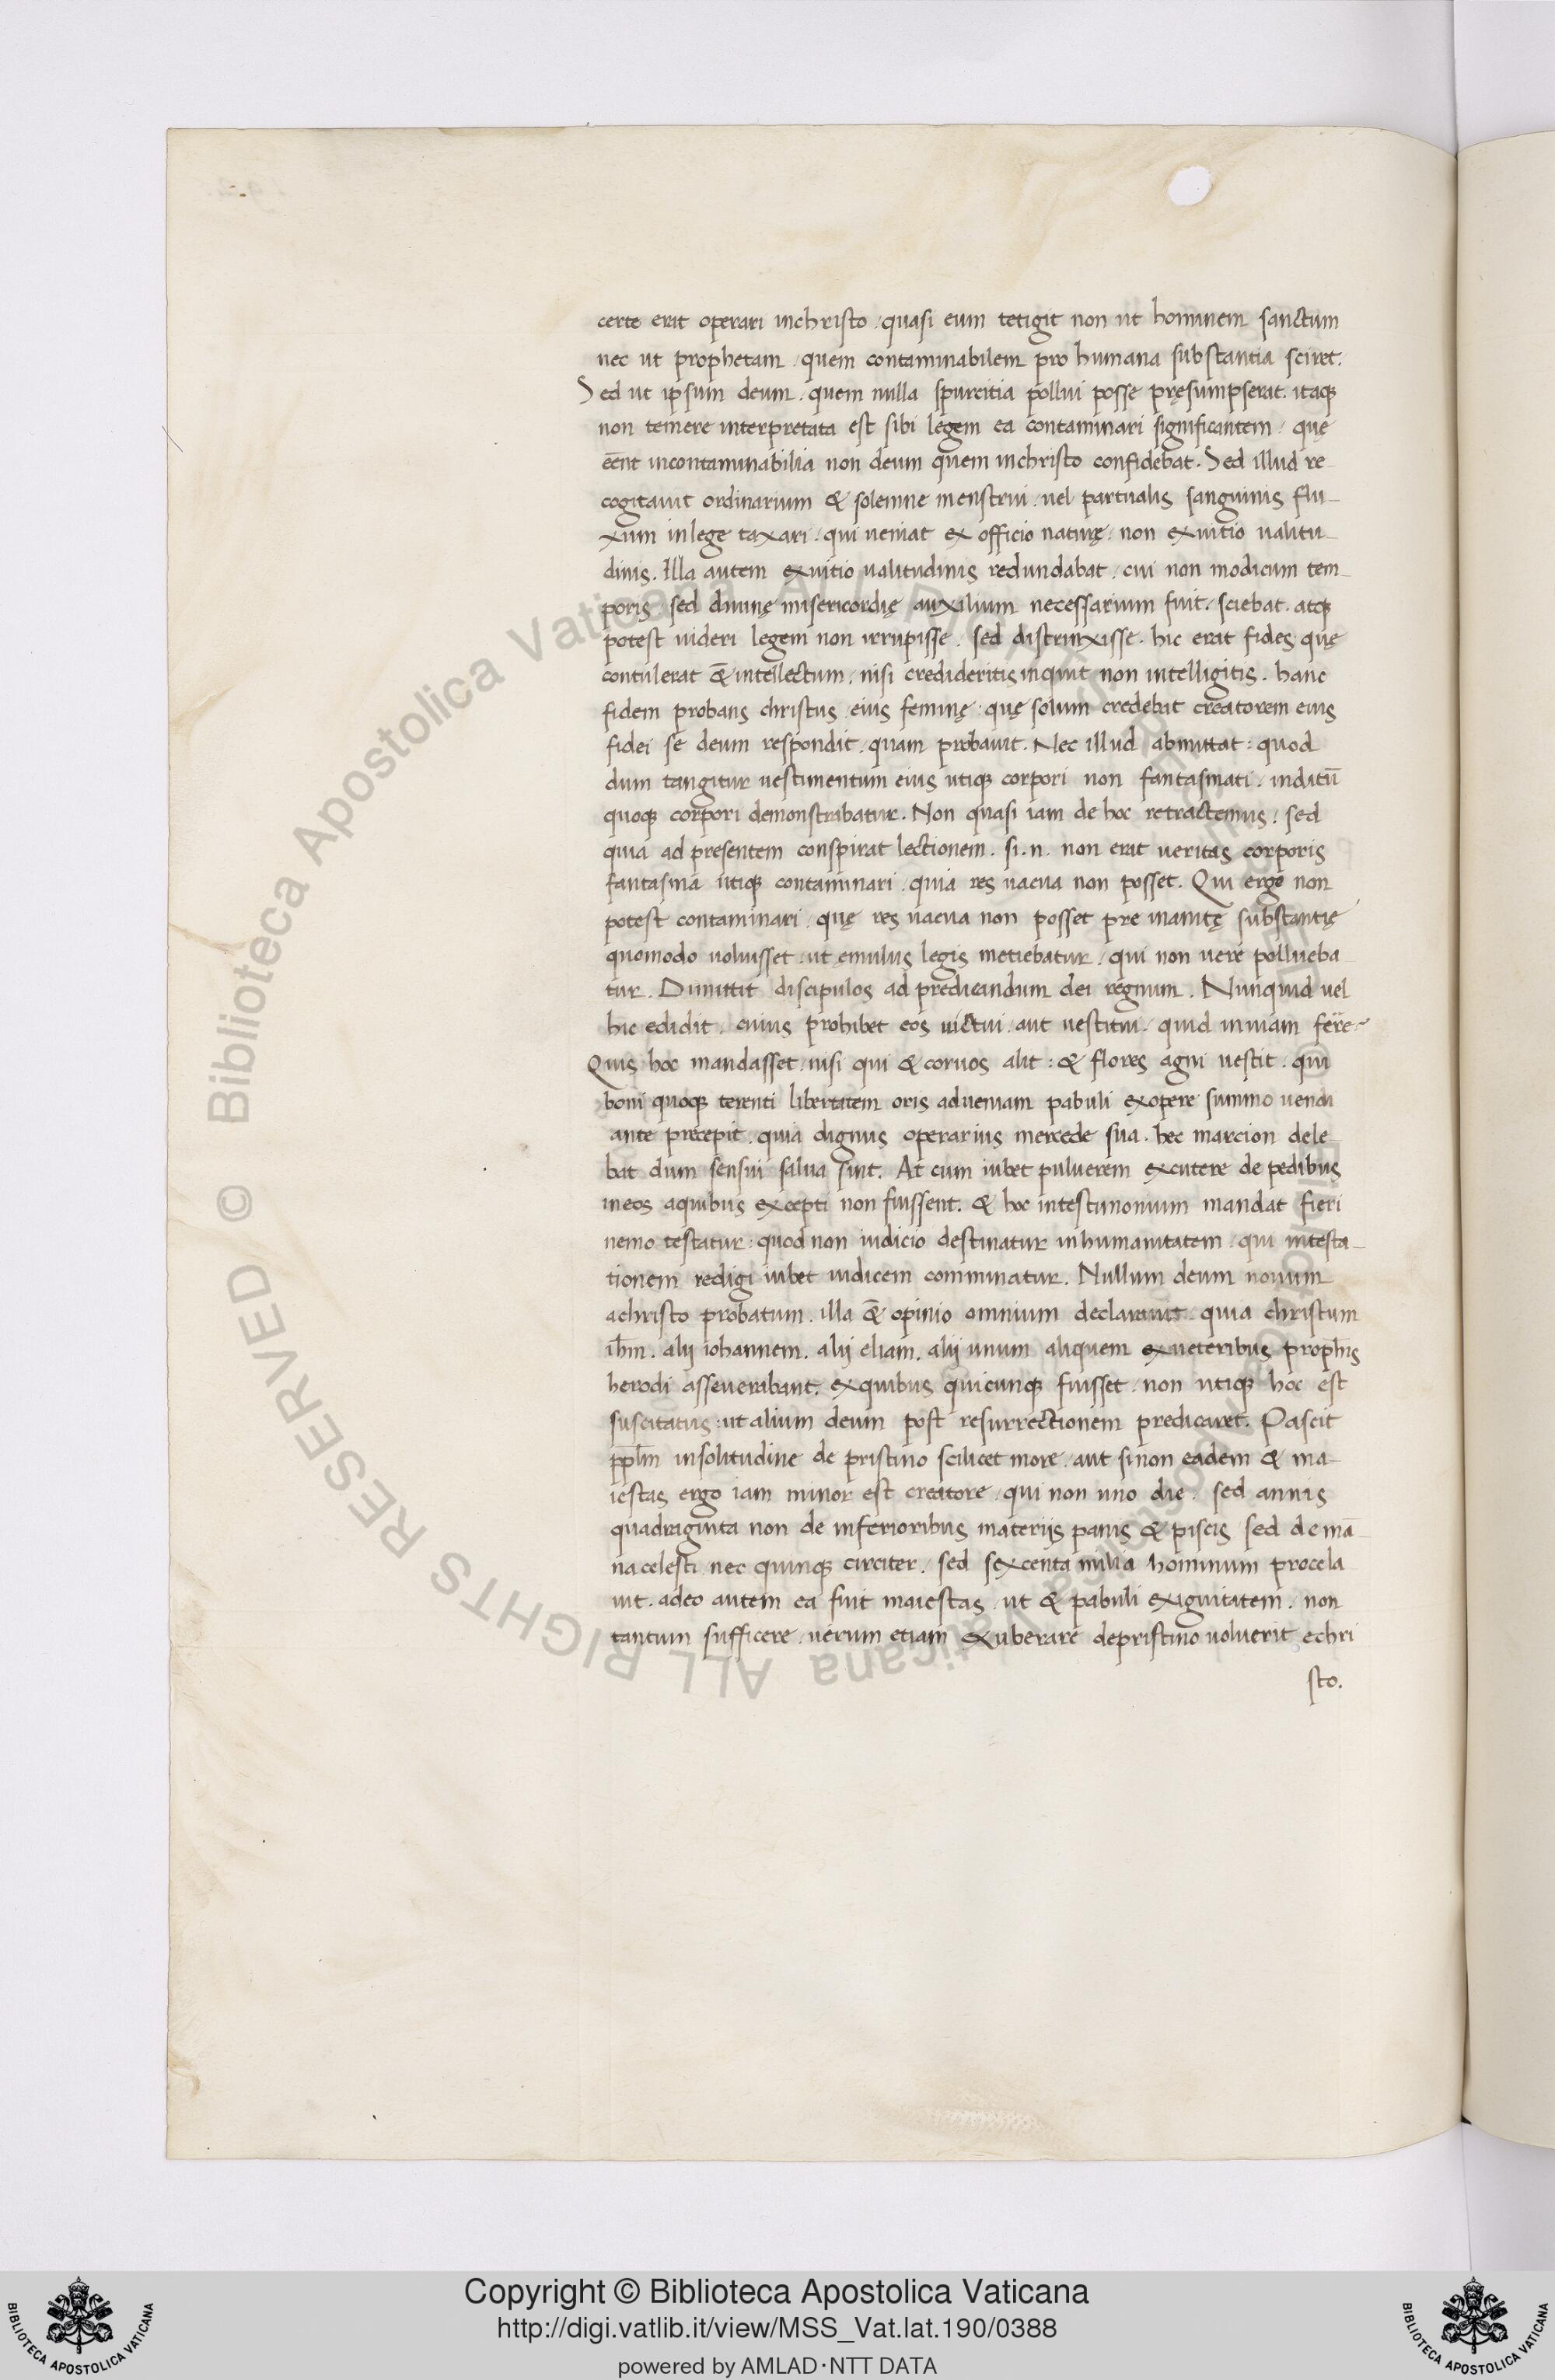 certe erat operari inchristo. quasi eum tetigit non ut hominem sanctum
nec ut prophetam. quem contaminabilem pro humana substantia sciret.
Sed ut ipsum deum. quem nulla spurcitia pollui posse pręsumpserat. itaqꝫ
non temere interpretata est sibi legem ea contaminari significantem. quę
eēnt incontaminabilia non deum quem inchristo confidebat. Sed illud re
cogitauit ordinarium & solemne menstrui. uel partualis sanguinis flu-
xum inlege taxari. qui ueniat ex officio naturę. non exuitio ualitu-
dinis. Illa autem exuitio ualitudinis redundabat. cui non modicum tem-
poris. sed diuinę misericordię auxilium necessarium fuit. sciebat. atqꝫ
potest uideri legem non irrupisse. sed distrinxisse. hic erat fides quę
contulerat &̄ intellectum. nisi credideritis inquit non intelligitis. hanc
fidem probans christus. eius feminę. quę solum credebat creatorem eius
fidei se deum respondit. quam probauit. Nec illud abmittat: quod
dum tangitur uestimentum eius utiqꝫ corpori non fantasmati. inditū
quoqꝫ corpori demonstrabatur. Non quasi iam de hoc retractemus. sed
quia ad presentem conspirat lectionem. si.n. non erat ueritas corporis
fantasma utiqꝫ contaminari. quia res uacua non posset. Qui ergo non
potest contaminari. quę res uacua non posset pre inanitę substantię
quomodo uoluisset. ut ęmulus legis metiebatur. qui non uere pollueba
tur. Dimittit discipulos ad predicandum dei regnum. Nunquid uel
hic edidit. cuius prohibet eos uictui. aut uestitui. quid inuiam ferre.
Quis hoc mandasset. nisi qui & coruos alit: & flores agni uestit. qui
boui quoqꝫ terenti libertatem oris adueniam pabuli exopere summo uendi
ante precepit. quia dignus operarius mercede sua. hec marcion dele
bat dum sensui salua sint. At cum iubet puluerem excutere de pedibus
ineos aquibus excepti non fuissent. & hoc intestimonium mandat fieri
nemo testatur: quod non iudicio destinatur inhumanitatem. qui intesta-
tionem redigi iubet iudicem comminatur. Nullum deum nouum
achristo probatum. illa &̄ opinio omnium declarauit. quia christum
ih̄m. alij iohannem. alij eliam. alij unum aliquem exueteribus proph̄is
herodi asseuerabant. exquibus quicunqꝫ fuisset. non utiqꝫ hoc est
suscitatus: ut alium deum post resurrectionem predicaret. Pascit
ppl̄m insolitudine de pristino scilicet more. aut sinon eadem & ma-
iestas ergo iam minor est creatore. qui non uno die. sed annis
quadraginta non de inferioribus materijs panis & piscis sed de mā
na celesti nec quinqꝫ circiter. sed sexcenta milia hominum procela
uit. adeo autem ea fuit maiestas. ut & pabuli exiguitatem. non
tantum sufficere. uerum etiam exuberare depristino uoluerit echri
sto.
© Biblioteca Apostolica Vaticana ALL RIGHTS RESERVED
Copyright © Biblioteca Apostolica Vaticana
http://digi.vatlib.it/view/MSS_Vat.lat.190/0388
powered by AMLAD·NTT DATA
BIBLIOTECA APOSTOLICA VATICANA
BIBLIOTECA APOSTOLICA VATICANA